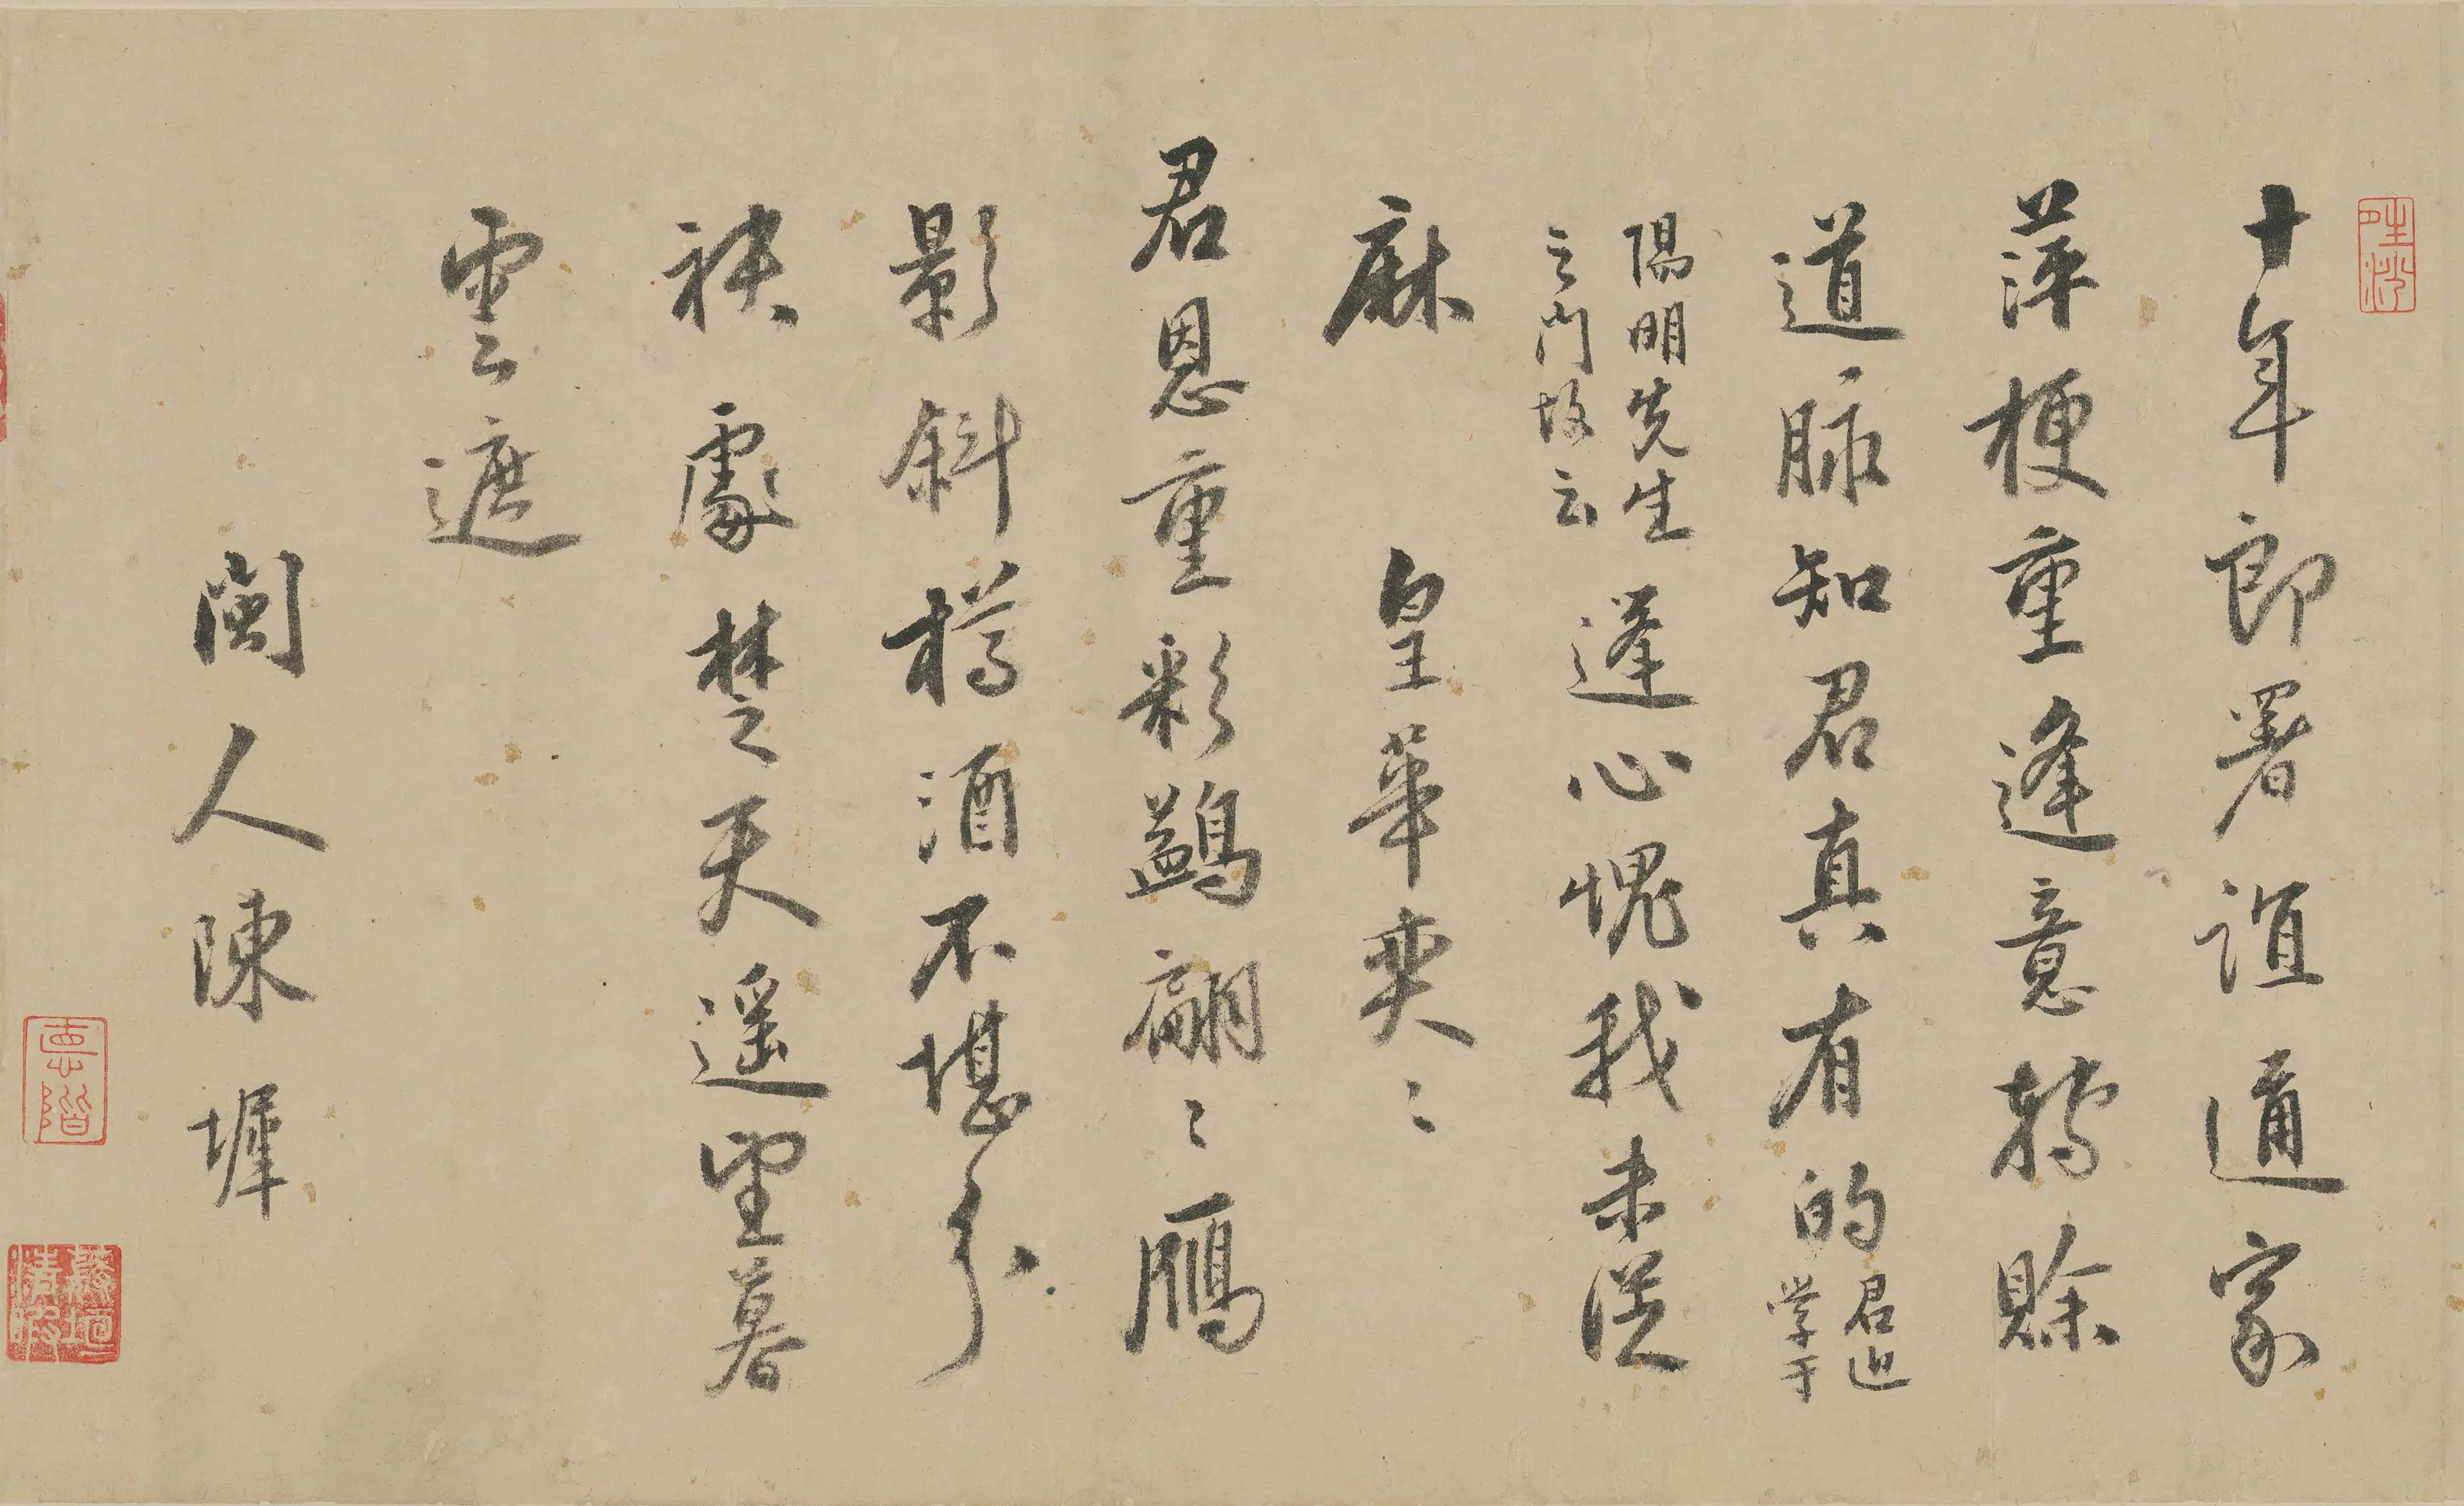 十年郎署誼通家
萍梗重逢意轉賒
道脉知君真有的
君近
学于
陽明先生
之門故云
蓬心愧我未從
麻 皇華奕〻
君恩重彩鷁翩〻鴈
影斜樽酒不堪分
袂處楚天遥望暮
雲遮
閩人陳墀
惪階